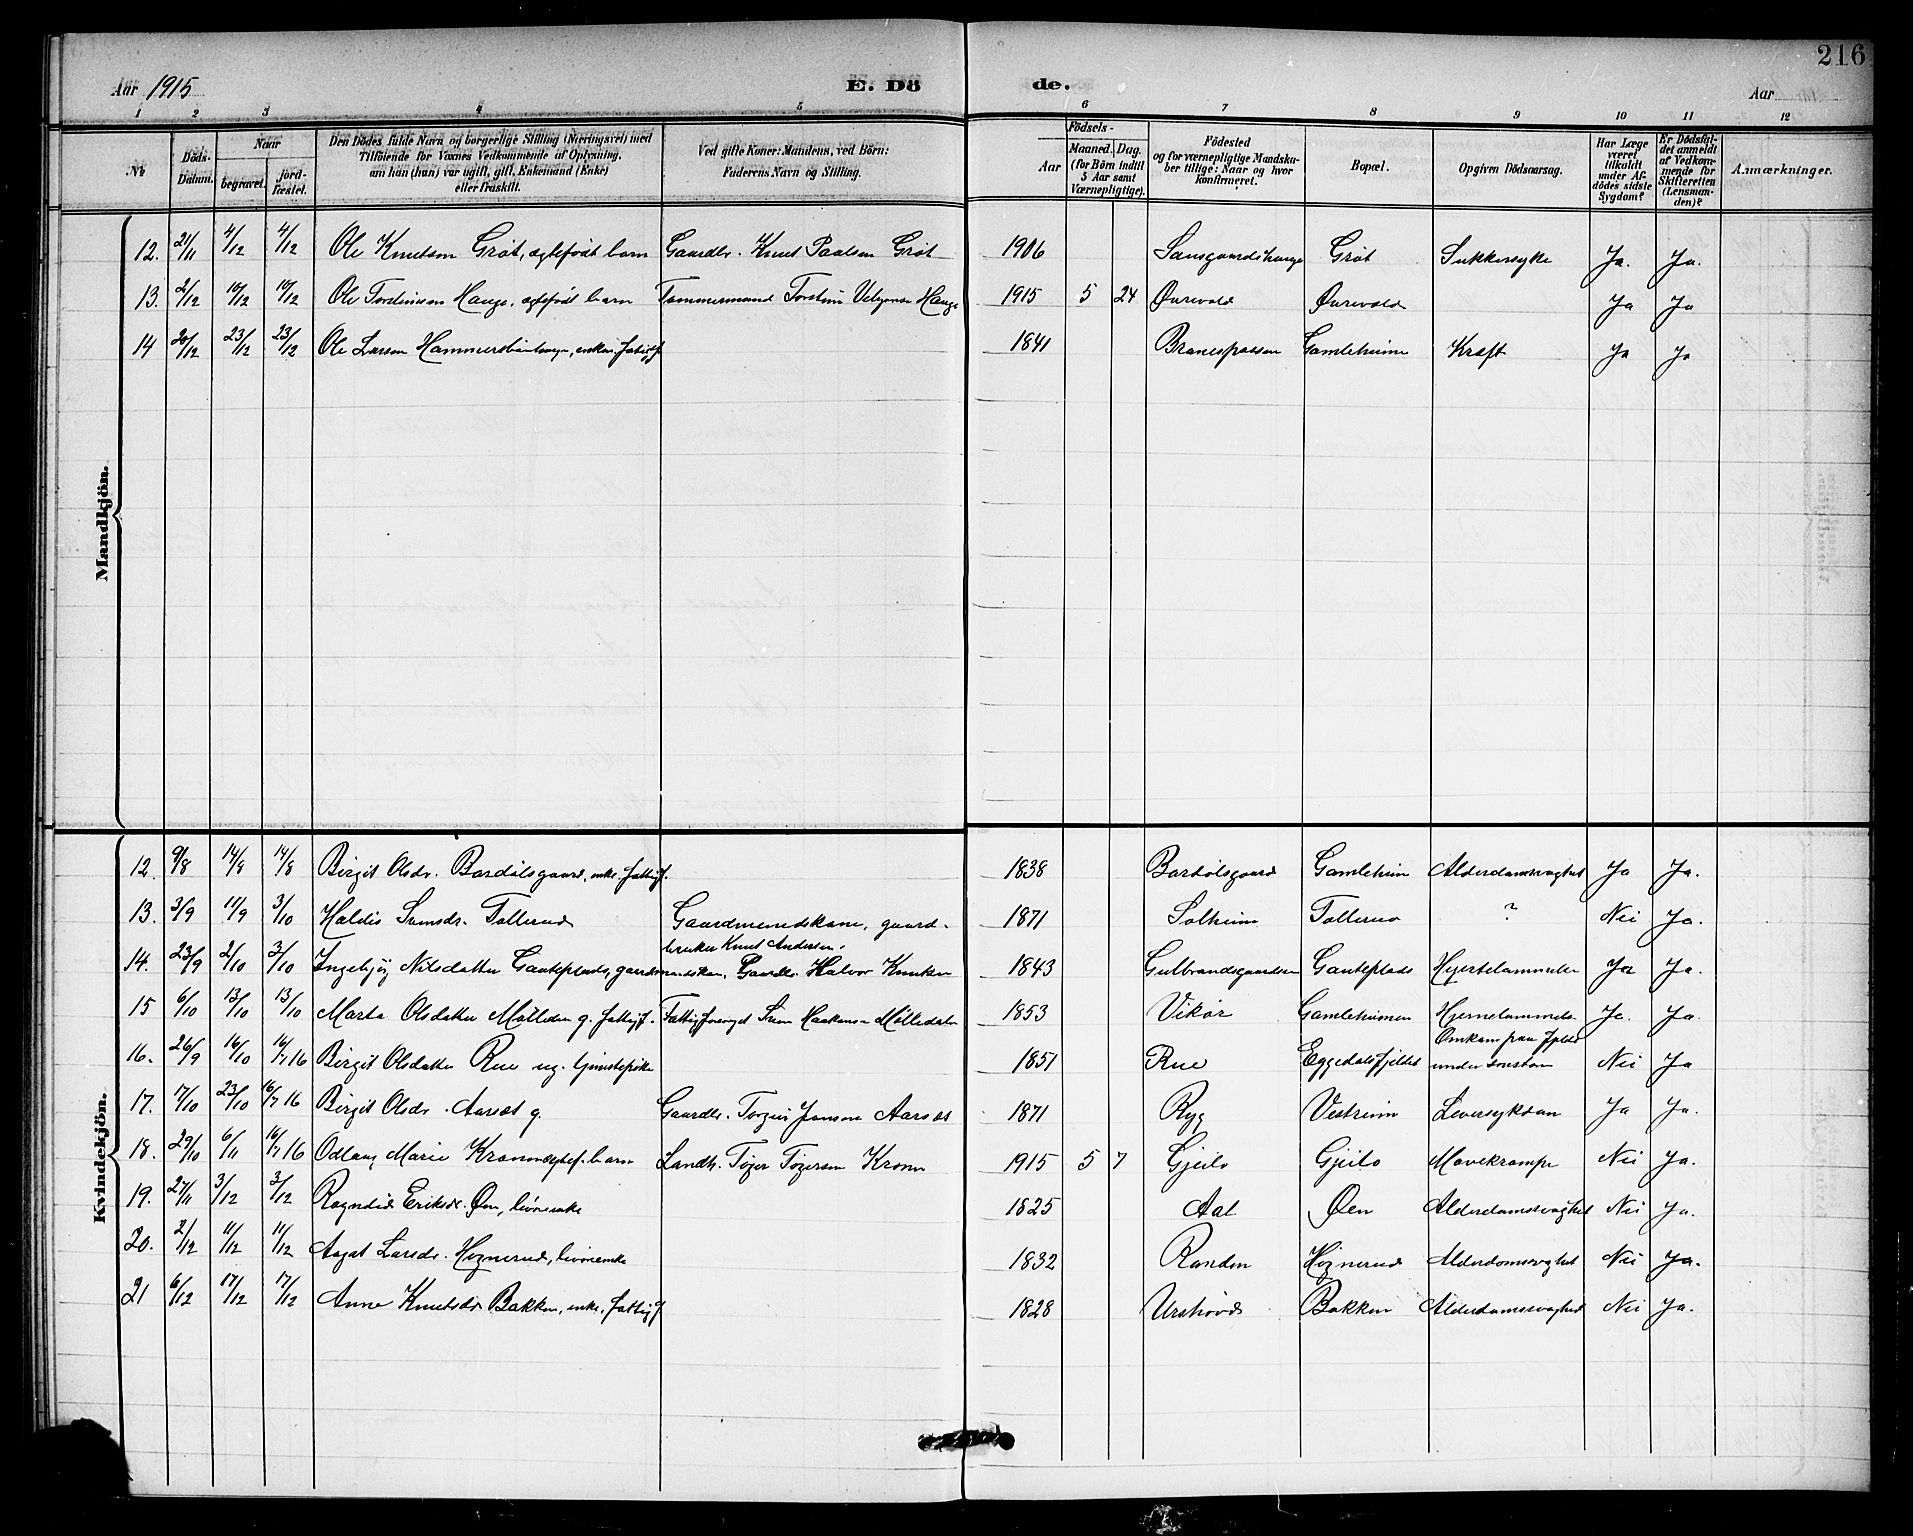 216
Aar 1915
E. Dö
de.
Aar
1 2 3 4 5 6 7 8 9 10 11 12
No
Döds-Datum.
Naar
begravet.
jord-fæstet.
Den Dödes fulde Navn og borgerlige Stilling (Næringsvei) med
Tilföiende for Voxnes Vedkommende af Oplysning,
om han (hun) var ugift, gift, Enkemand (Enke)
eller fraskilt.
Ved gifte Koner: Mandens, ved Börn:
Faderens Navn og Stilling.
Födsels-
Aar
Maaned. Dag.
(for Börn indtil
5 Aar samt
Værnepligtige).
Födested
og for værnepligtige Mandska-
ber tillige: Naar og hvor
konfirmeret.
Bopæl.
Opgiven Dödsaarsag.
Har Læge
været
tilkaldt
under Af-
dödes sidste
Sygdom?
Er Dödsfal-
det anmeldt
af Vedkom-
mende for
Skifteretten
(Lensman-
den)?
Anmærkninger.
Mandkjön.
12. 21/11 4/12 4/12 Ole Knutsen Grøt, egtefødt barn Gaardbr. Knut Paalsen Grøt 1906 Grøt Sukkersyke Ja. Ja.
13. 2/12 10/12 10/12 Ole Torsteinsen Hauge, egtefødt barn Tømmermand Torstein Hauge 1915 5 24 Ja Ja
14 20/12 23/12 23/12 Ole Larsen 1841 Gamleheim Kræft Ja Ja
Kvindekjön.
12. 9/8 14/8 14/8 Birgit Olsdr. Bardølsgaard, enke. fattigf. 1838 Bardølsgaard Gamleheim Alderdomssvaghet Ja Ja.
13. 3/9 11/9 3/10 Haldis Svensdr. Tollerud Gaardmandskone, gaard- 1871 Solheim Tollerud ? Nei Ja.
bruker Knut Andersen.
14. 23/9 2/10 3/10 Ingebjørg Nilsdatter Ganteplads, gaardmandskone. Gaardbr. Halvor Knutsen 1843 Gulbrandsgaarden Ganteplads Hjertelammelse Ja Ja.
15 6/10 13/10 13/10 Marta Olsdatter g. fattigf. Fattigforsørget Mølledalen 1853 Vikør Gamleheimen Hjernelammelse Ja. Ja.
16. 26/9 16/10 16/7 16 Birgit Olsdatter Rue ug. tjenestepike 1851 Rue Eggedalsfjeldet Omkom paa fjeldet under snestorm Nei Ja
17. 17/10 23/10 16/7 16 Birgit Olsdr. Aarset g. Gaardbr. Aarset 1871 Ryg Vestreim Leversykdom Ja Ja.
18. 29/10 6/11 16/7 16 Odlaug Marie Kronn egtef. barn Landh. Tøger Tøgersen Kronn 1915 5 7 Gjeilo Gjeilo Mavekrampe Nei Ja.
19. 27/11 3/12 3/12 Ragndid Eriksdr. Øen, livøreenke 1825 Aal Øen Alderdomssvaghet Nei Ja.
20. 2/12 11/12 11/12 Aagat Larsdr. Høgnerud, livøreenke 1832 Randen Høgnerud Alderdomssvaghet Nei Ja.
21 6/12 17/12 17/12 Anne Knutsdr Bakken, enke, fattigf 1828 Bakken Alderdomssvaghed Nei Ja.